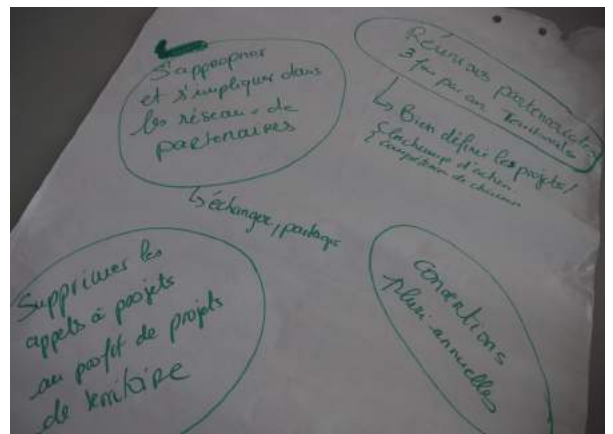 S'approprier
et s'impliquer dans
les réseaux de
partenaires
↳ échanger, partager
Réunions partenariales
3 fois par an Territoriales
↳ Bien définir les projets/
les champs d'action
compétition de chacun
Supprimer les
appels à projets
au profit de projets
de territoire
Conventions
pluri-annuelles